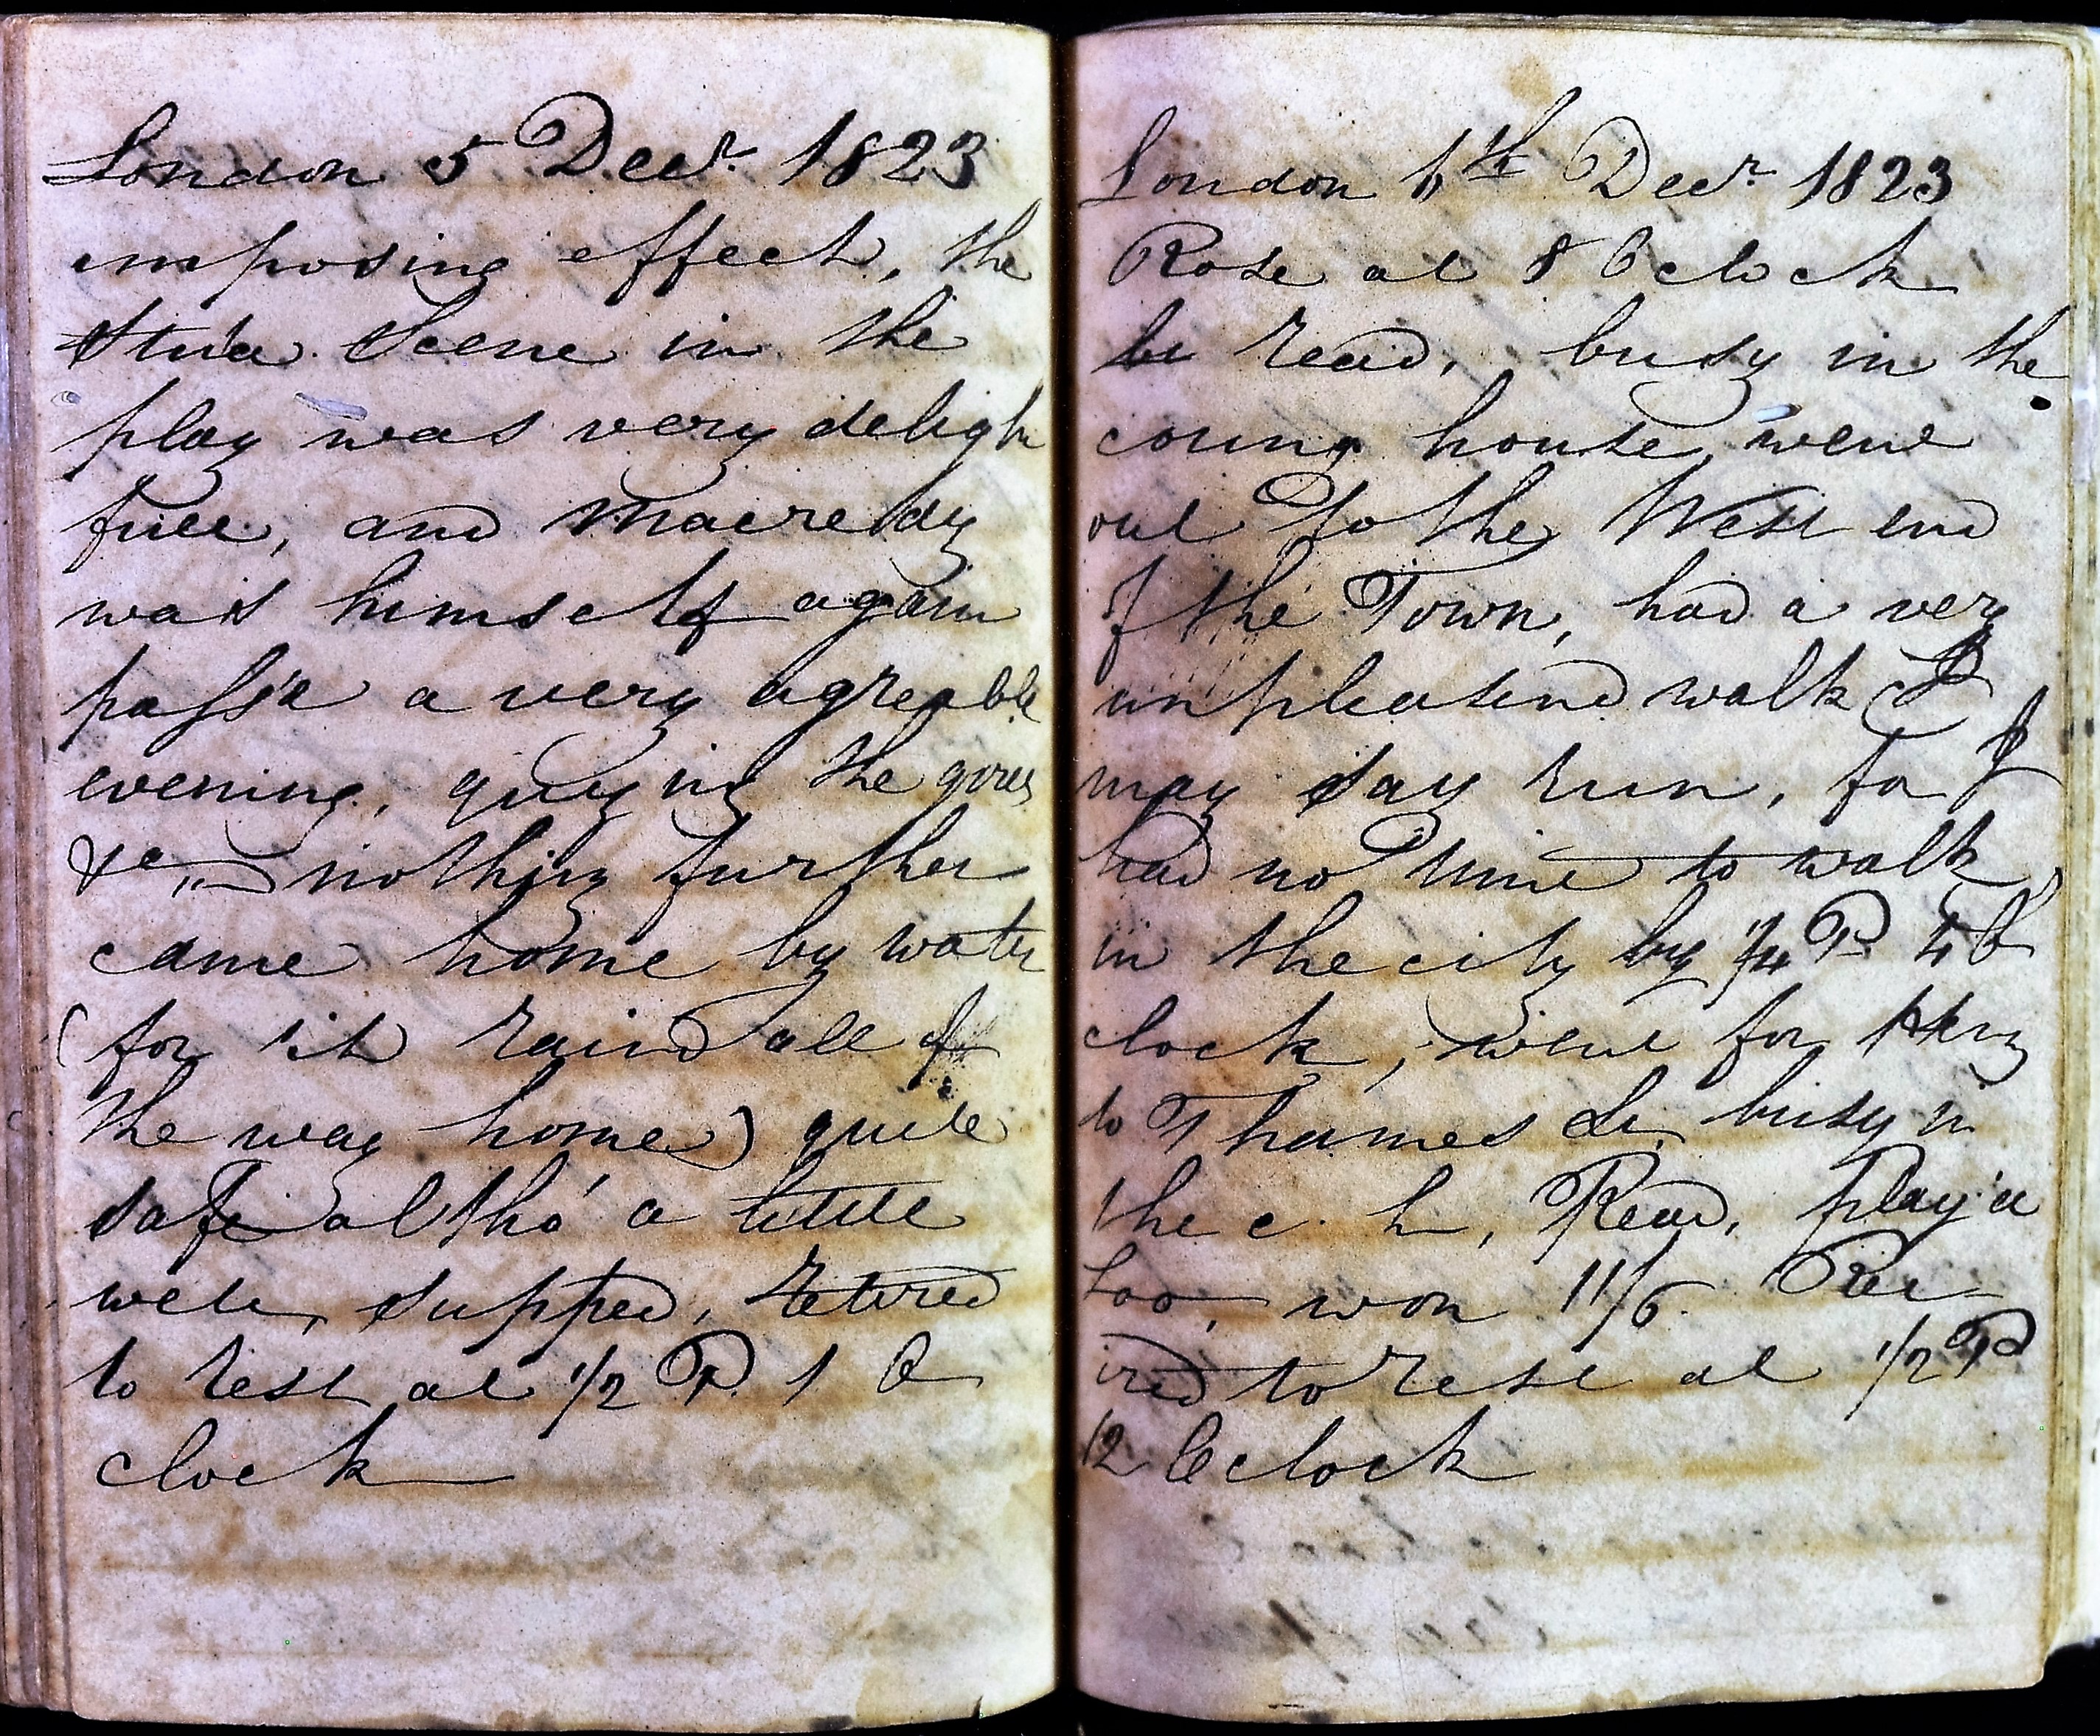 London 5 Decr. 1823
imposing effect, the
Scene in the
play was very deligh
full, and Macready
was himself again
pass'd a very agreable
evening, quizzing the
&c,, nothing further
came home by water
(for it raind all of
the way home) quite
safe altho' a little
wett, supped, retired
to rest at 1/2 P. 1 O
clock
London 6th Decr. 1823
Rose at 8 Oclock
read, busy in the
coung house, went
out to the West end
of the Town, had a very
unpleasend walk I
may say run, for I
had no time to walk,
in the city by 1/4 P. 4 O
clock, went for Hery
to Thames St. busy in
the c. h, Read, play'd
Loo, won 11/6. Ret
ired to rest at 1/2 P
12 Oclock